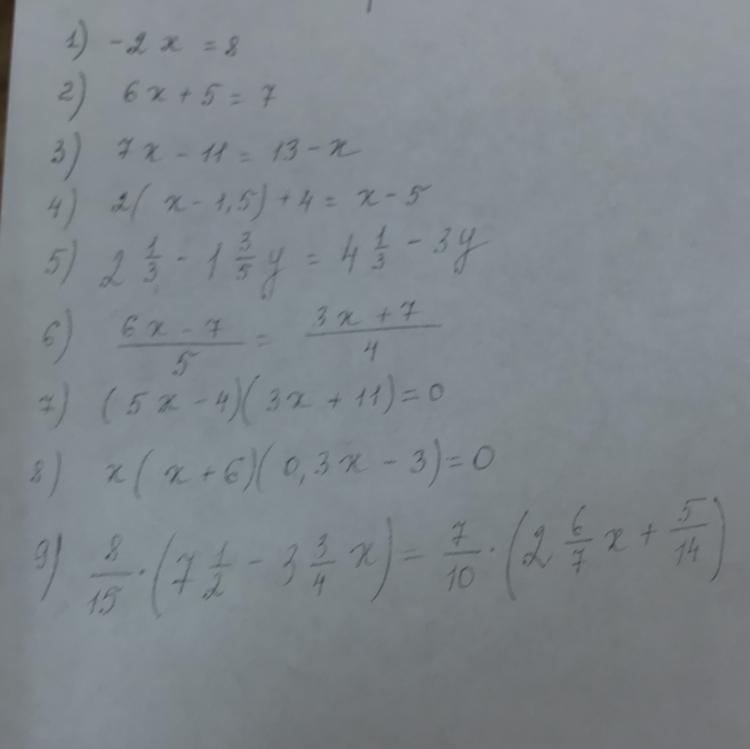 1) -2x = 8
2) 6x + 5 = 7
3) 7x - 11 = 13 - x
4) 2( x - 1,5) + 4 = x - 5
5) 2 1/3 - 1 3/5 y = 4 1/3 - 3y
6) (6x - 7)/5 = (3x + 7)/4
7) (5x - 4)(3x + 11) = 0
8) x( x + 6)(0,3x - 3) = 0
9) 8/15 · (7 1/2 - 3 3/4 x) = 7/10 · (2 6/7 x + 5/14)